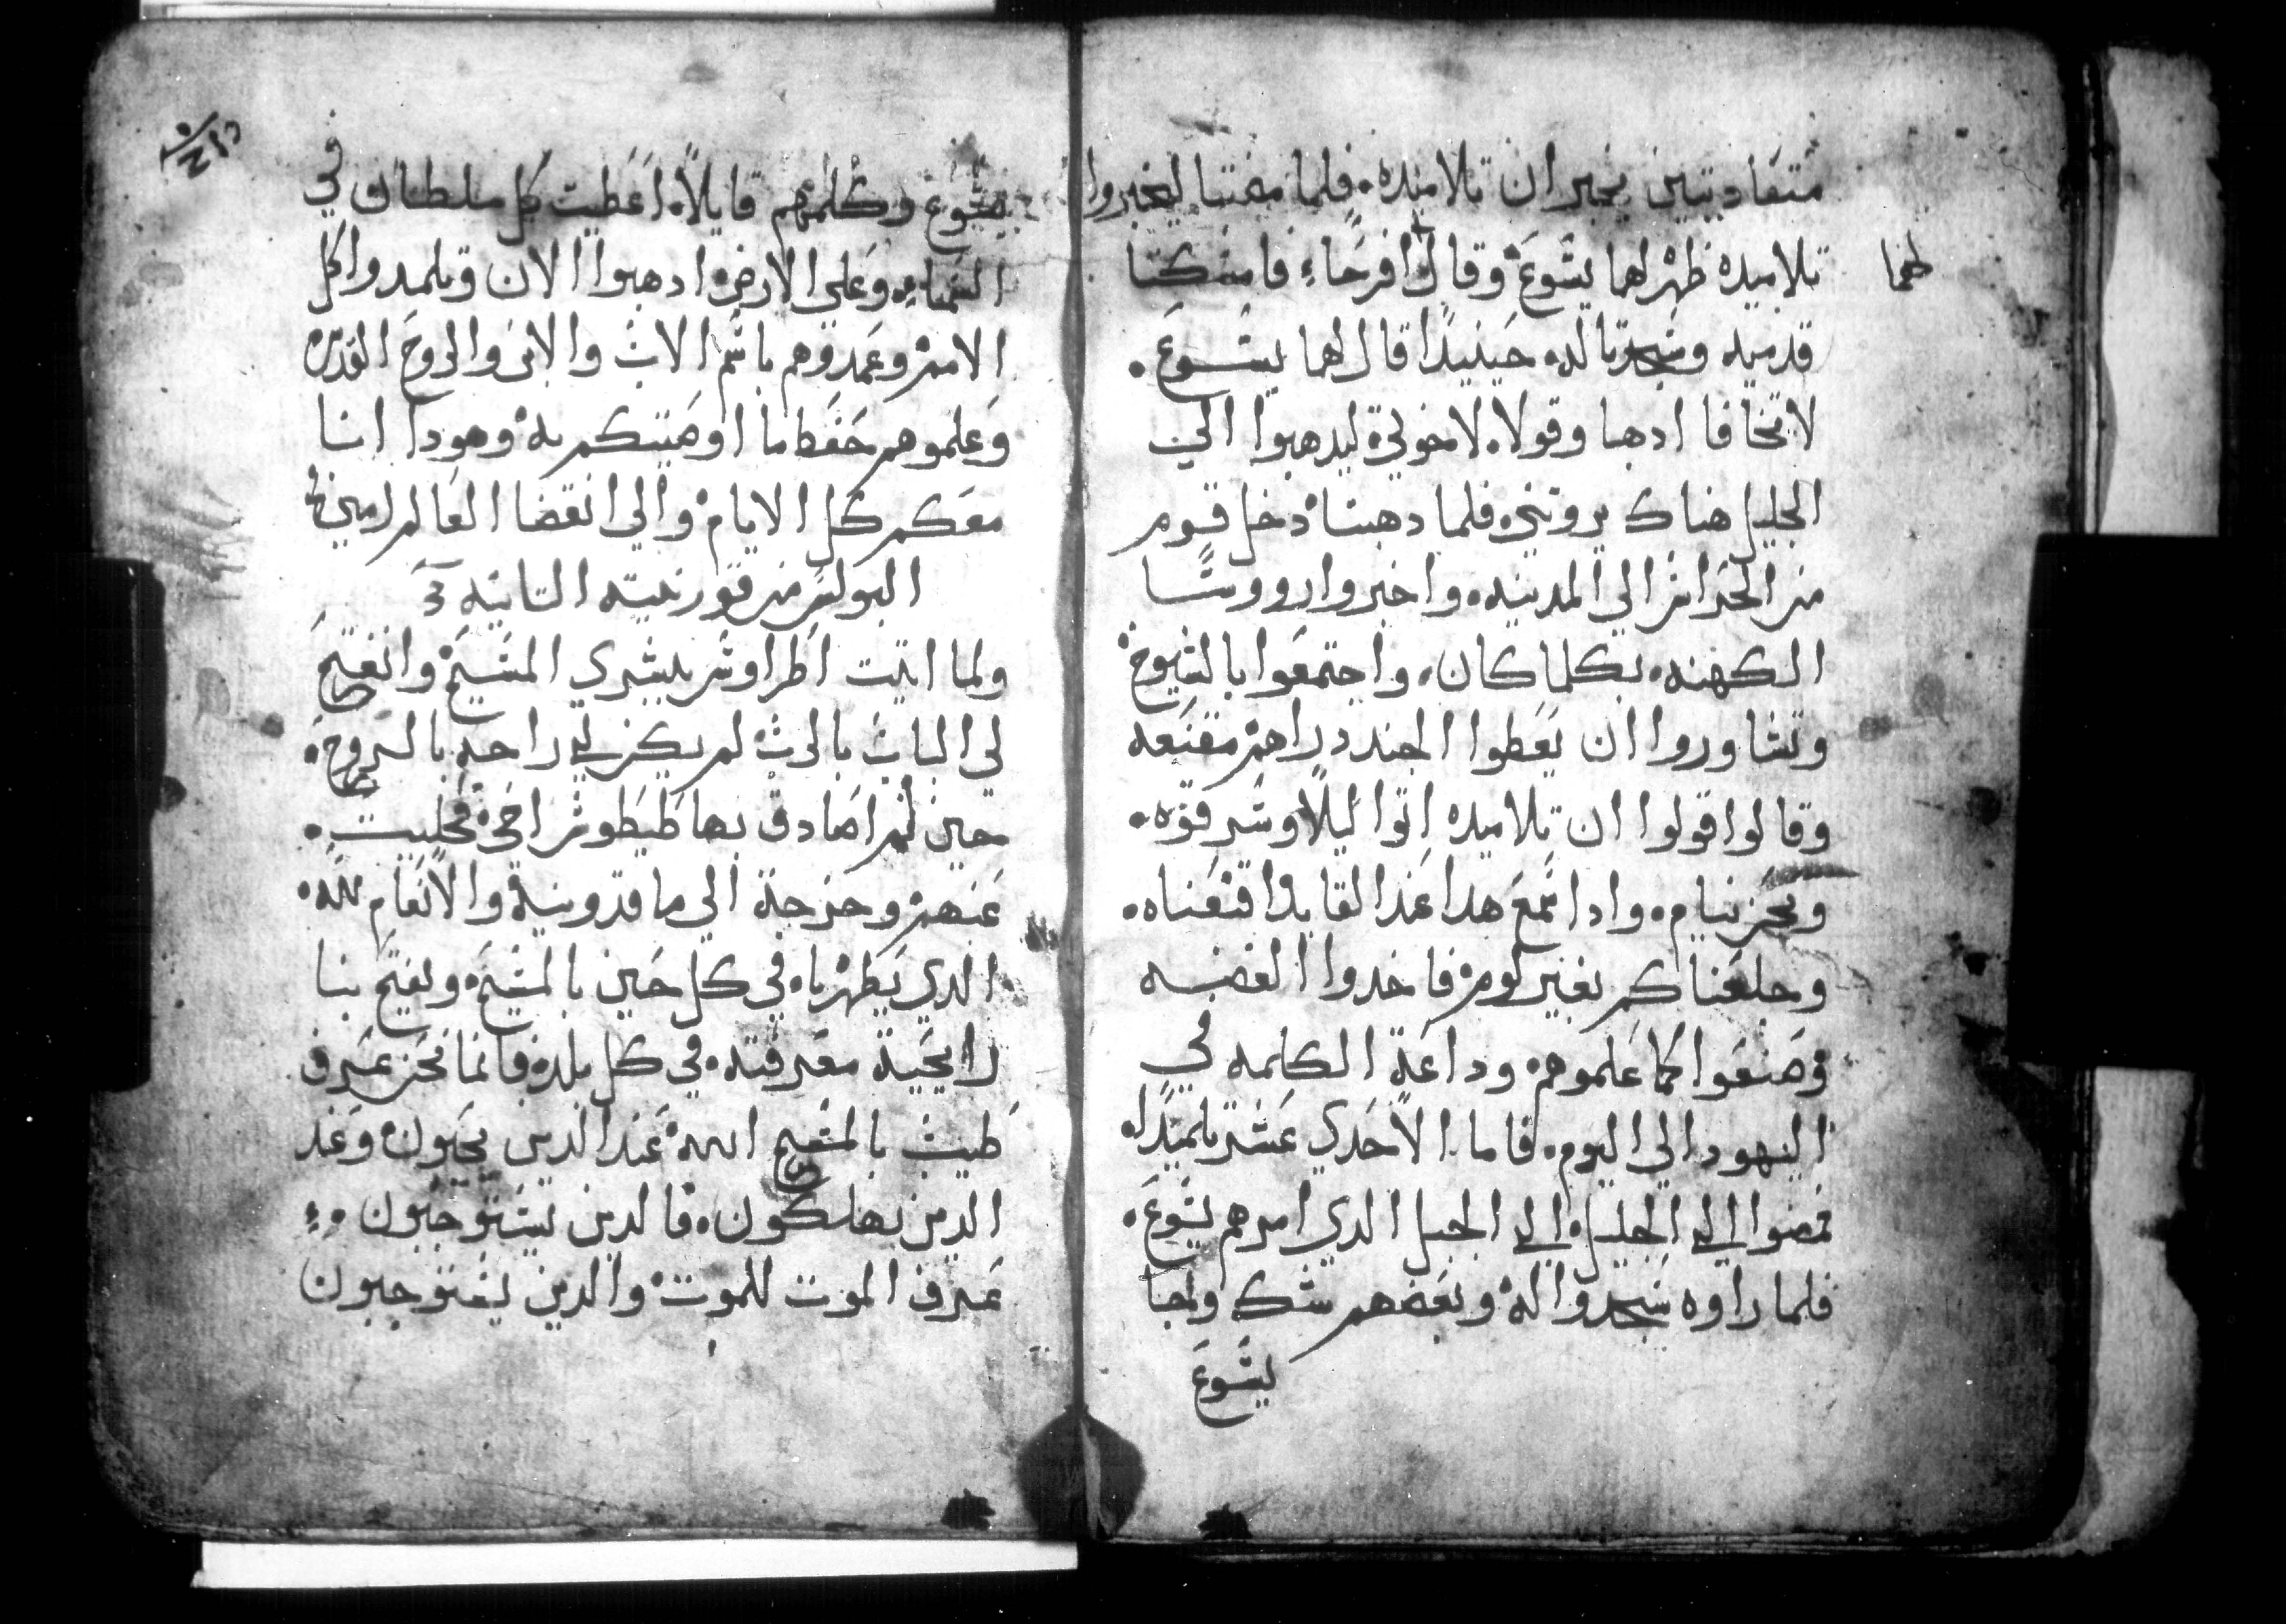 متعاديتين يخبران تلاميذه. فلما مضتبا ليخبروا
تلاميذه ظهر لهما يشوع وقال افرحا، فامسكتا
لهما
قدميه وسجدتا له. حينيدا قال لهما يشوع.
لا تخافا ادهبا وقولا. لاخوتي ليدهبوا الي
الجليل هناك يروني. فلما دهبتا دخل قوم
من الحراس الي المدينه. واخبروا رووسا
الكهنه. بكلما كان. واجتمعوا بالشيوخ
وتشاوروا ان يعطوا الجند دراهم مقنعه
وقالوا قولوا ان تلاميده اتوا ليلا وسرقوه.
ونحن نيام. وادا سمع هدا عند القايد اقنعناه.
وجلعناكم بغير لوم فاخدوا الفضه
وصنعوا كما علموهم وداعة الكلمه في
اليهود الي اليوم. فاما الاحدي عشر تلميدا.
فمضوا الي الجليل الي الجبل الدي امرهم يشوع.
فلما راوه سجدوا له وبعضهم شك ولجا
يشوع
يشوع وكلمهم قايلا. اعطيت كل سلطان في
السماء. وعلي الارض ادهبوا الان وتلمدوا كل
الامم وعمدوهم باسم الاب والابن والروح القدس
وعلموهم حفظ ما اوصيتكم به وهودا انا
معكم كل الايام والي انقضا العالم امين
البولس من قورنتيه التانيه
ولما اتيت اطراوس ببشري المسيح وانفتح
لي الباب بالرب لم يكن لي راحة بالروح.
حين لم اصادف بها طيطوس اخي. فخليت.
عنهم وخرجة الي ماقدونية والانعام لله.
الدي يظهرنا. في كل حين بالمسيح. ويفتح بنا
رايحية معرفته. في كل بلد. فانما نحن عرف
طيب بالمسيح الله عند الدين يحيون وعند
الدين يهلكون. فالدين يستوجبون
عرف الموت للموت والدين يستوجبون